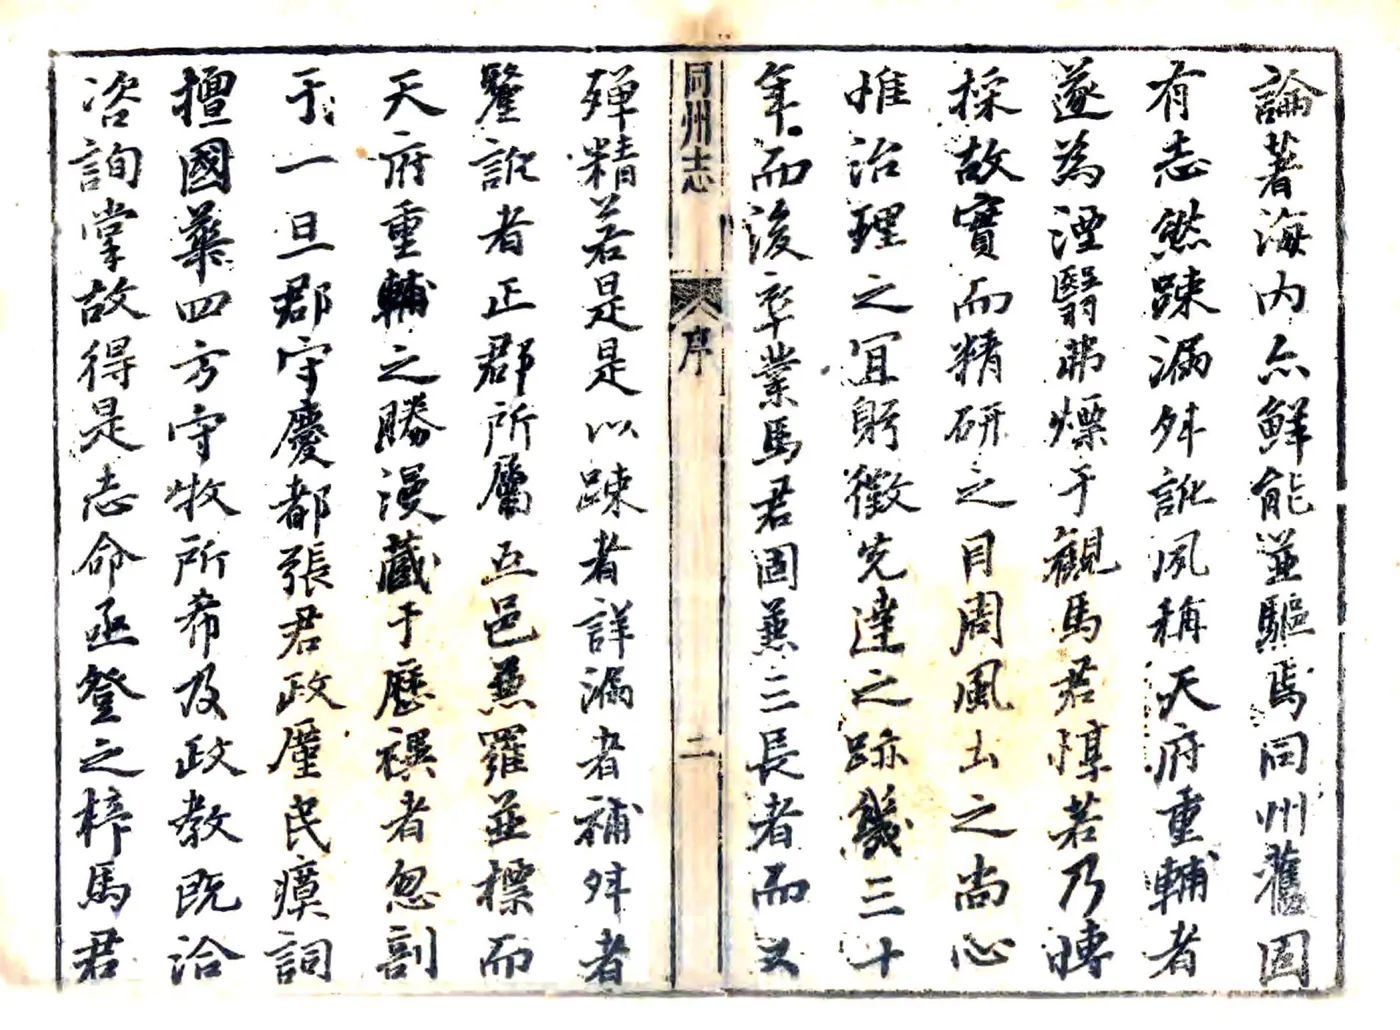 論著海内亦鮮能並驅焉同州舊固
有志然踈漏舛訛夙稱天府重輔者
遂為湮翳弗燦于觀馬君惇若乃愽
採故實而精研之目周風土之尚心
惟治理之宜躬徵先達之跡幾三十
年而後卒業馬君固兼三長者而又
同州志
序
二
殫精若是是以踈者詳漏者補舛者
釐訛者正郡所屬五邑兼羅並標而
天府重輔之勝漫蔵于歷禩者忽剖
于一旦郡守慶都張君政厪民瘼詞
擅國華四方守牧所希及政教既洽
咨詢掌故得是志命亟登之梓馬君